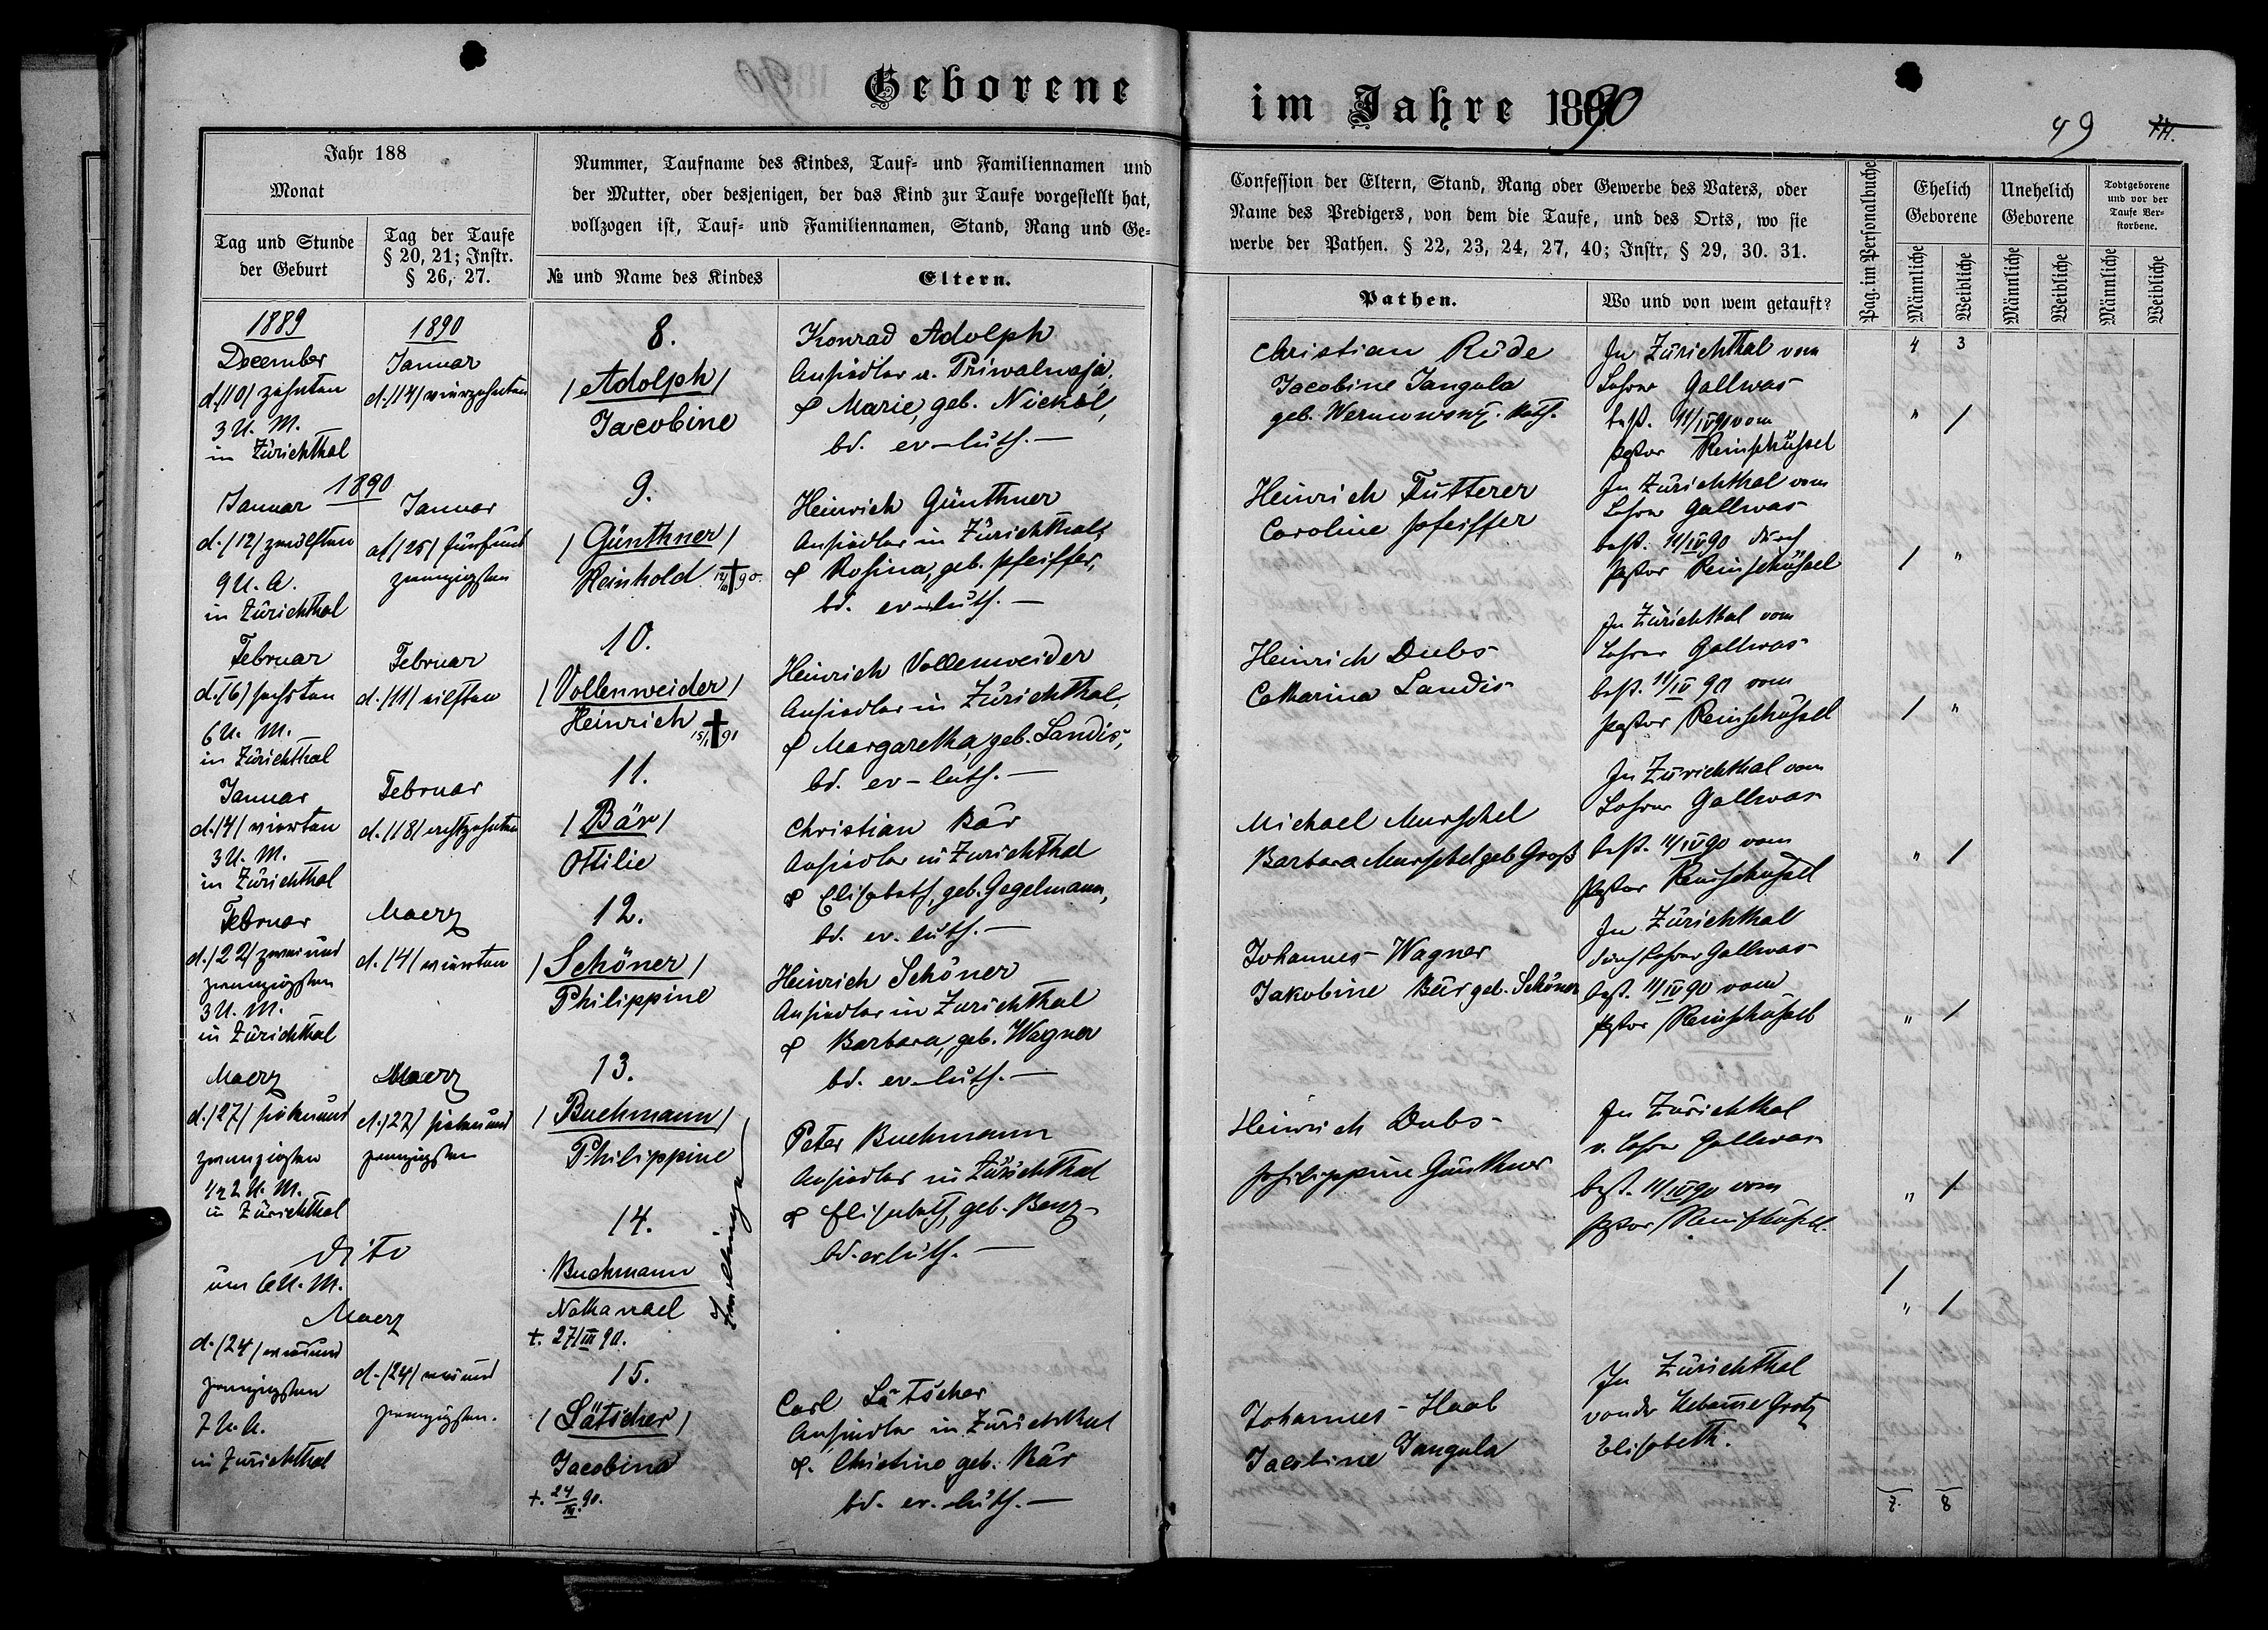 Geborene im Jahre 1890
49
Jahr 188
Monat
Tag und Stunde
der Geburt
Tag der Taufe
§ 20, 21; Instr.
§ 26, 27.
Nummer, Taufname des Kindes, Tauf- und Familiennamen und
der Mutter, oder desjenigen, der das Kind zur Taufe vorgestellt hat,
vollzogen ist, Tauf- und Familiennamen, Stand, Rang und Ge-
№ und Name des Kindes
Eltern.
Confession der Eltern, Stand, Rang oder Gewerbe des Vaters, oder
Name des Predigers, von dem die Taufe, und des Orts, wo sie
werbe der Pathen. § 22, 23, 24, 27, 40; Instr, § 29, 30. 31.
Pathen.
Wo und von wem getauft?
Pag. im Personalbuche
Ehelich
Geborene
Männliche
Weibliche
Unehelich
Geborene
Männliche
Weibliche
Todtgeborene
und vor der
Taufe Ver-
storbene.
Männliche
Weibliche
1889
December
d. /10/ zehnten
3 U. M.
in Zürichthal
1890
Januar
d. /14/ vierzehnten
8.
/Adolph/
Jacobine
Konrad Adolph
Ansiedler a. Priwalnaja,
& Marie, geb. Nickel,
bd. ev-luth. —
Christian Rüde
Jacobine Jangula
geb.
In Zürichthal vom
Lehrer Gallwas
best. 11/IV 90 vom
Pastor Reinhüssel
4 3
" /
1890
Januar
d. /12/ zwölften
9 U. A.
in Zürichthal
Januar
d /25/ fünfund
zwanzigsten
9.
/Günthner/
Reinhold † 90.
Heinrich Günthner
Ansiedler in Zürichthal,
& Rosina, geb. Pfeiffer,
bd. ev-luth. —
Heinrich Futterer
Caroline Pfeiffer
In Zürichthal vom
Lehrer Gallwas
best. 11/IV 90 durch
Pastor Reinhüssel
/ "
Februar
d. /6/ sechsten
6 U. M.
in Zürichthal
Februar
d. /11/ eilften
10.
/Vollenweider/
Heinrich
15/I † 91
Heinrich Vollenweider
Ansiedler in Zürichthal,
& Margaretha, geb. Landis,
bd. ev-luth. —
Heinrich Dubs
Catharina Landis
In Zürichthal vom
Lehrer Gallwas
best. 11/IV 90 vom
Pastor Reinhüssel
/ "
Januar
d. /4/ vierten
3 U. M.
in Zürichthal
Februar
d. /18/ achtzehnten
11.
/Bär/
Ottilie
Christian Bär
Ansiedler in Zürichthal
& Elisabeth, geb. Gegelmann,
bd. ev. luth. —
Michael Murschel
Barbara Murschel geb. Groß
In Zürichthal vom
Lehrer Gallwas
best. 11/IV 90 vom
Pastor Reinhüssel
" /
Februar
d. /22/ zweiund
zwanzigsten
3 U. M.
in Zürichthal
Maerz
d. /4/ vierten
12.
/Schöner/
Philippine
Heinrich Schöner
Ansiedler in Zürichthal
& Barbara, geb. Wagner
bd. ev-luth. —
Johannes Wagner
Jakobine Bär geb. Schöner
In Zürichthal
durch Lehrer Gallwas
best. 11/IV 90 vom
Pastor Reinhüssel
" /
Maerz
d. /27/ siebenund
zwanzigsten
1/2 2 U. M.
in Zürichthal
Maerz
d. /27/ siebenund
zwanzigsten
13.
/Buchmann/
Philippine
Zwillinge
Peter Buchmann
Ansiedler in Zürichthal
& Elisabeth, geb. Benz
bd. ev luth. —
Heinrich Dubs
Philippine Günthner
In Zürichthal
v. Lehrer Gallwas
best. 11/IV 90 vom
Pastor Reinhüssel.
" /
dito
um 6 U. M.
14.
Buchmann
Nathanael
†. 27/III 90.
/
Maerz
d. /24/ vierund
zwanzigsten
7 U. A.
in Zürichthal
d. /24/ vierund
zwanzigsten.
15.
/Lätscher/
Jacobina
†. 24/III. 90.
Carl Lätscher
Ansiedler in Zürichthal
& Christine geb. Bär
bd. ev. luth. —
Johannes Haab
Jacobine Jangula
In Zürichthal
von der Hebamme Grotz
Elisabeth.
" /
7. 8